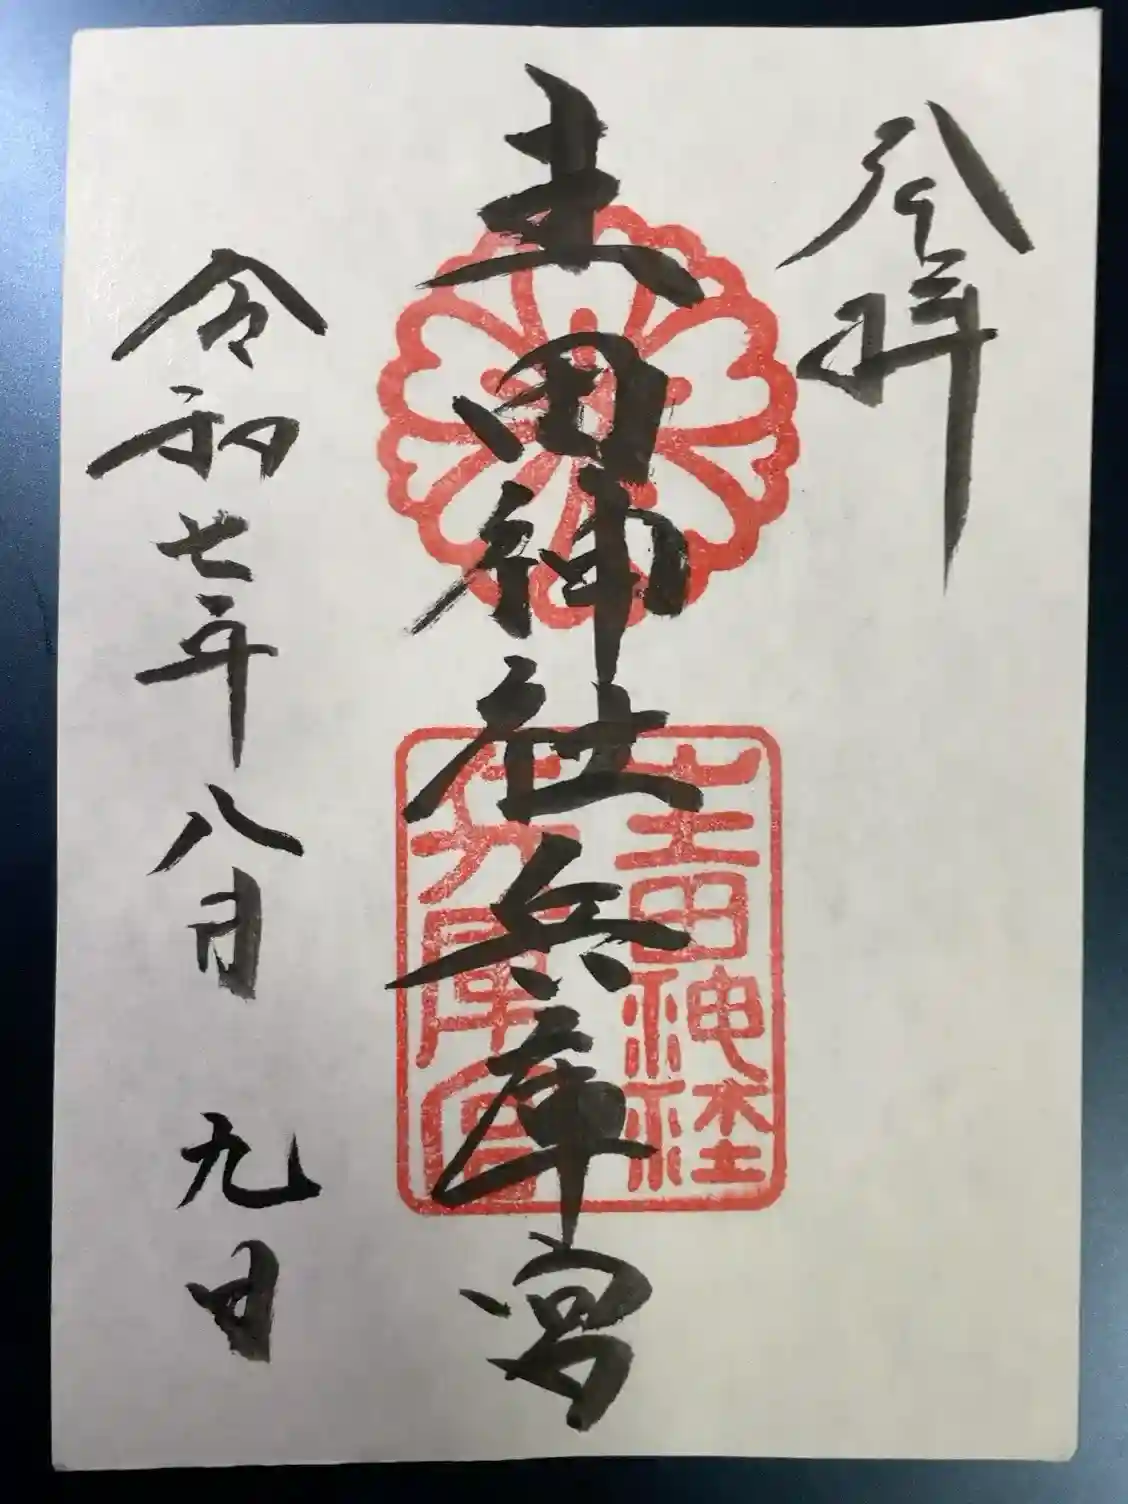 参拝
生田神社兵庫宮
令和七年八月九日
生田神社
兵庫宮